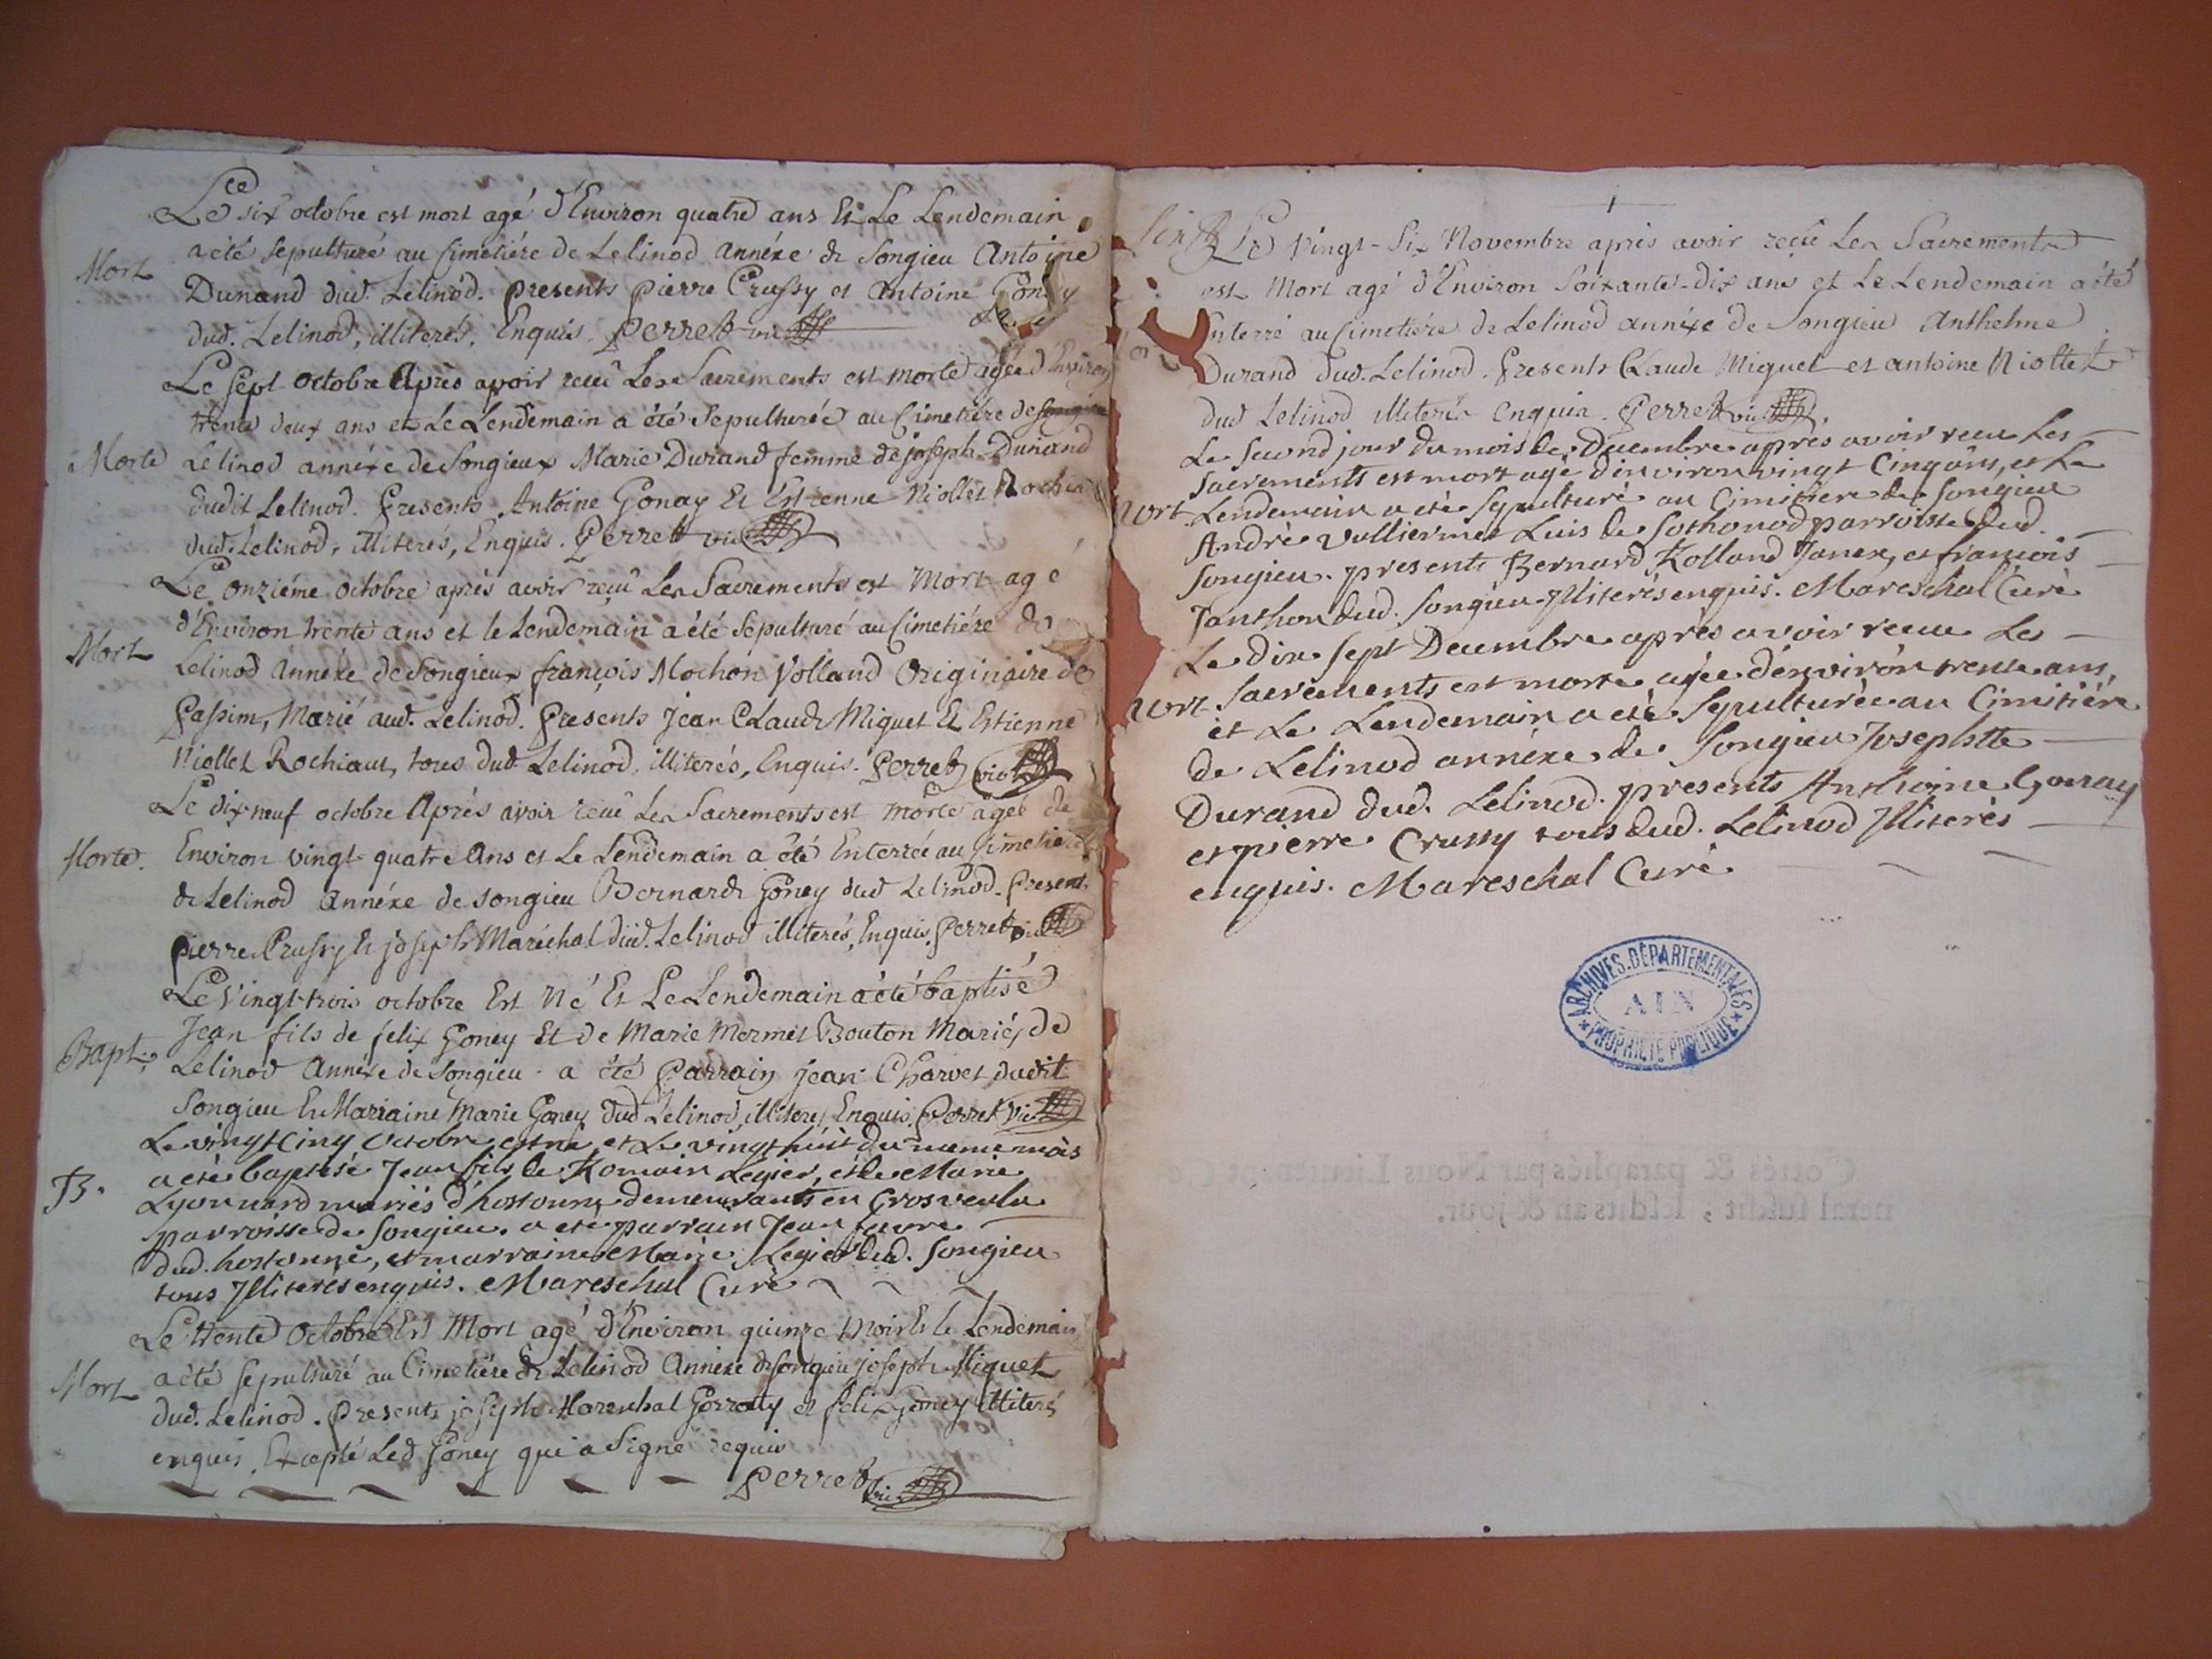 Le six octobre est mort agé d'Environ quatre ans Et Le Lendemain
Mort
a été sepulturé au Cimetiére de Lelinod annéxe de Songieu Antoine
Dunand dud. Lelinod. presents pierre Crussy et Antoine Goney
dud. Lelinod, illiterés, Enquis. Perret vic
Le sept octobre Après avoir recû Les Sacrements est morte agée d'Environ
trente deux ans et Le Lendemain a été Sepulturée au Cimetiére de
Morte
Lelinod annéxe de Songieux Marie Durand femme de joseph Dunand
dudit Lelinod. Presents Antoine Gonay Et Estienne Niollet Rochia
dud. Lelinod, illiterés, Enquis. Perret vic
Le onziéme octobre après avoir reçû Les Sacrements est Mort agé
d'Environ trente ans et le Lendemain a été Sepulturé au Cimetiére de
Mort
Lelinod Annéxe de Songieux françois Mochon Volland Originaire de
Passim, Marié aud. Lelinod. Presents Jean Claude Miguet Et Estienne
Niollet Rochiaux, tous dud. Lelinod, illiterés, Enquis. Perret vic
Le dix neuf octobre Après avoir recû Les Sacrements est morte agée de
Morte.
Environ vingt-quatre Ans et Le Lendemain a été Enterrée au Cimetiere
de Lelinod Annéxe de songieu Bernarde Goney dud Lelinod. Present
pierre Crussy Et joseph Maréchal dud. Lelinod illiterés, Enquis. Perret vic
Le Vingt-trois octobre Est Né Et Le Lendemain a été baptisé
Jean fils de felix Goney Et de Marie Mermet Bouton Mariés de
Bapt.
Lelinod Annéxe de Songieu. a été Parrain Jean Charvet dudit
Songieu Et Marraine Marie Goney dud Lelinod, illiterés Enquis. Perret vic
Le vingt cinq octobre est né et Le vingt huit du meme mois
a eté baptisé Jean fils de Romain Legier, et de Marie
B.
Lyonnard mariés d'hostonne demeurants en Grosvenlu
parroisse de Songieu. a eté parrain Jean favre
dud. hostonne, et marraine Marie Legier dud. Songieu
tous Jlliterés enquis. Mareschal Curé
Le trente Octobre Est Mort agé d'Environ quinze mois Et le Lendemain
a été sepulturé au Cimetiére de Lelinod Annéxe de songieu joseph Miguet
Mort
dud. Lelinod. Presents joseph Mareschal et felix Goney illiterés
enquis. Excepté Led Goney qui a Signé requis
Perret vic
Le Vingt-Six Novembre après avoir reçû Les Sacrements
est Mort agé d'Environ Soixante-dix ans et Le Lendemain a été
Enterré au Cimetiére de Lelinod annéxe de Songieu Anthelme
Durand dud. Lelinod. Presents Claude Miguet et antoine Niollet
dud Lelinod illiterés enquis. Perret vic
Le second jour du mois de Decembre après avoir receu Les
Sacrements est mort agé d'environ vingt Cinq ans, et Le
Mort
Lendemain a eté sepulturé au Cimitiere de Songieu
André Vulliermet Luis de Sothonod parroisse dud.
Songieu. presents Bernard Rolland Janex, et francois
Janthon dud. Songieu Jlliterés enquis. Mareschal Curé
Le dix sept Decembre après avoir receu Les
Sacrements est morte agée d'environ trente ans,
Mort
et Le Lendemain a eté sepulturée au Cimitiére
de Lelinod annéxe de Songieu Josephtte
Durand dud. Lelinod. presents Anthoine Gonay
et pierre Crussy tous dud. Lelinod Jlliterés
enquis. Mareschal Curé
ARCHIVES DÉPARTEMENTALES
AIN
PROPRIÉTÉ PUBLIQUE
Cottés & paraphés par Nous Lieutenant
neral susdit, lesdits an & jour.